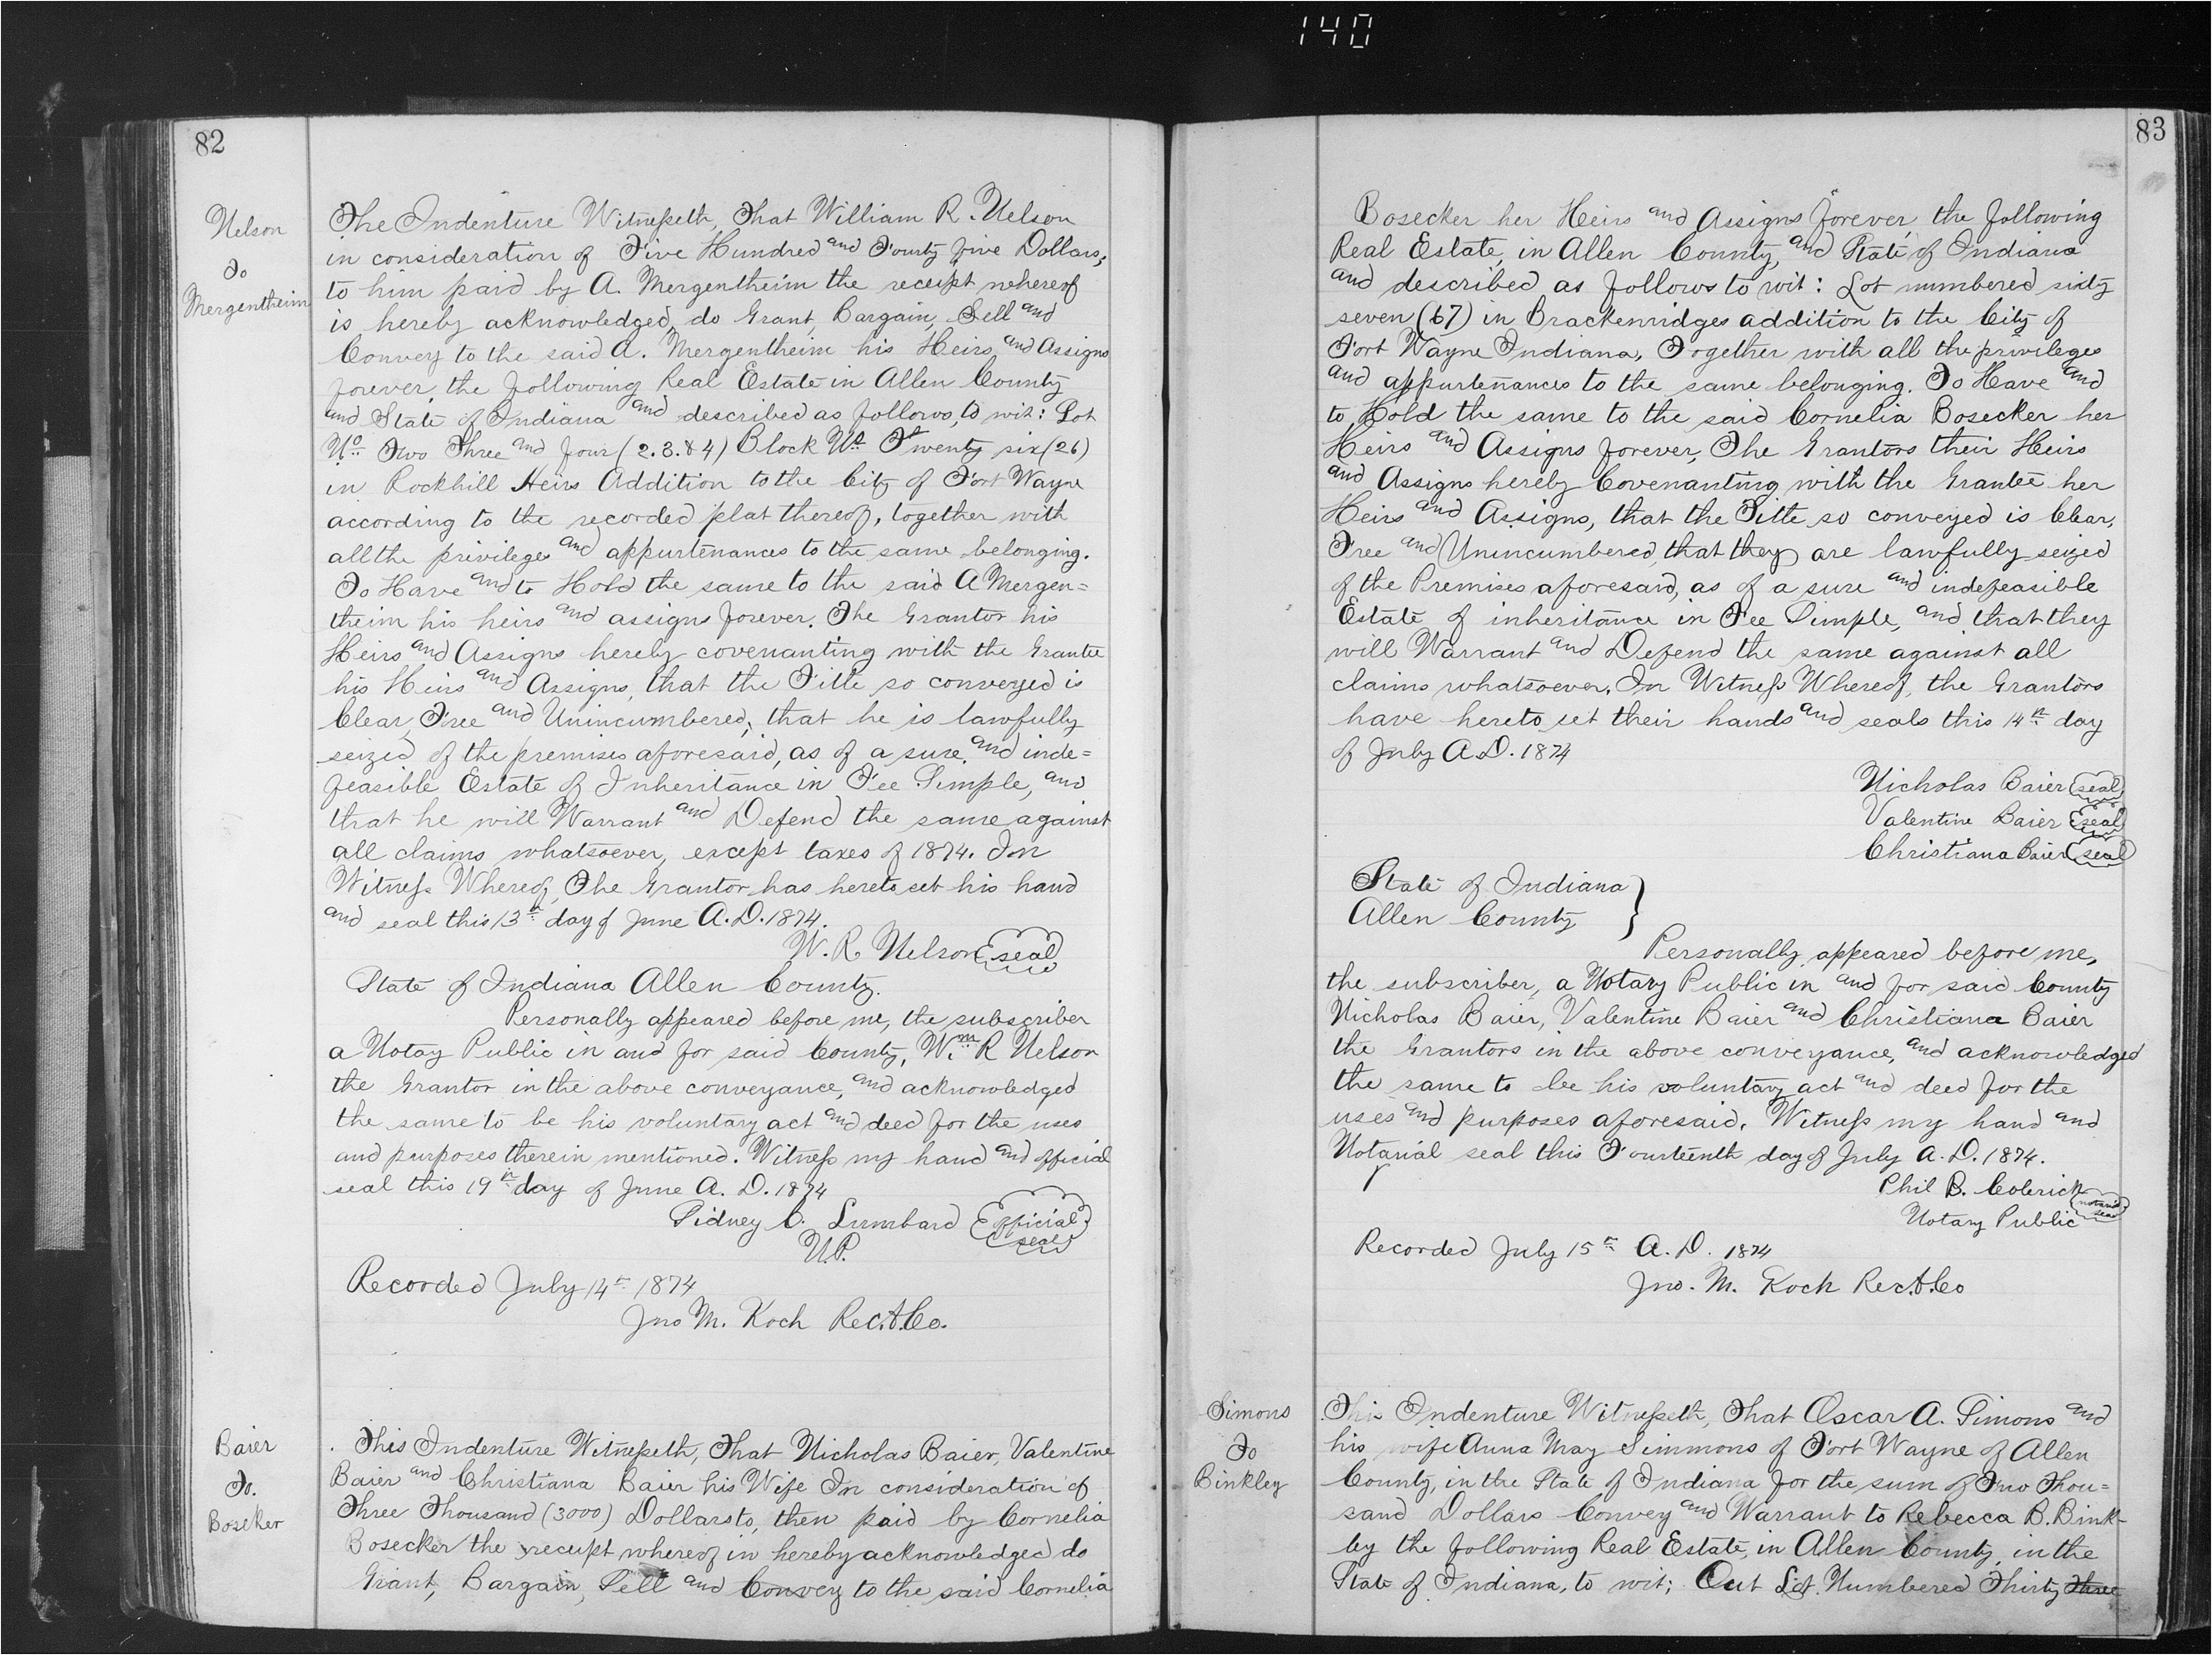 140
82
Nelson
To
Mergentheim
The Indenture Witnesseth, That William R. Nelson
in consideration of Five Hundred and Fourty five Dollars,
to him paid by A. Mergentheim the receipt whereof
is hereby acknowledged, do Grant, Bargain, Sell and
Convey to the said A. Mergentheim his Heirs and Assigns
forever, the following Real Estate in Allen County
and State of Indiana and described as follows, to wit: Lot
No. Two Three and four (2.3.&4) Block No. Twenty six (26)
in Rockhill Heirs Addition to the City of Fort Wayne
according to the recorded plat thereof, together with
all the privileges and appurtenances to the same belonging.
To Have and to Hold the same to the said A Mergen=
theim his heirs and assigns forever. The Grantor his
Heirs and Assigns hereby covenanting with the Grantee
his Heirs and Assigns, that the Title so conveyed is
Clear, Free and Unincumbered, that he is lawfully
seized of the premises aforesaid, as of a sure and inde=
feasible Estate of Inheritance in Fee Simple, and
that he will Warrant and Defend the same against
all claims whatsoever, except taxes of 1874. In
Witness Whereof, The Grantor has hereto set his hand
and seal this 13th day of June A.D. 1874.
W. R. Nelson seal
State of Indiana Allen County.
Personally appeared before me, the subscriber
a Notay Public in and for said County, Wm. R Nelson
the Grantor in the above conveyance, and acknowledged
the same to be his voluntary act and deed for the uses
and purposes therein mentioned. Witness my hand and official
seal this 19th day of June A. D. 1874
Sidney C. Lumbard official seal
N.P.
Recorded July 14th 1874
Jno M. Koch Rec.A.Co.
Baier
To.
Bosecker
This Indenture Witnesseth, That Nicholas Baier, Valentine
Baier and Christiana Baier his Wife In consideration of
Three Thousand (3000) Dollars to, then paid by Cornelia
Bosecker the receipt whereof in hereby acknowledged do
Grant, Bargain, Sell and Convey to the said Cornelia
83
Bosecker her Heirs and Assigns forever, the following
Real Estate, in Allen County, and State of Indiana
and described as follows to wit: Lot numbered sixty
seven (67) in Brackenridges addition to the City of
Fort Wayne Indiana, Together with all the privileges
and appurtenances to the same belonging. To Have and
to Hold the same to the said Cornelia Bosecker her
Heirs and Assigns forever, The Grantors their Heirs
and Assigns hereby Covenanting with the Grantee her
Heirs and Assigns, that the Title so conveyed is Clear,
Free and Unincumbered, that they are lawfully seized
of the Premises aforesaid, as of a sure and indefeasible
Estate of inheritance in Fee Simple, and that they
will Warrant and Defend the same against all
claims whatsoever, In Witness Whereof, the Grantors
have hereto set their hands and seals this 14th day
of July A.D. 1874
Nicholas Baier seal
Valentine Baier seal
Christiana Baier seal
State of Indiana }
Allen County
Personally appeared before me,
the subscriber, a Notary Public in and for said County
Nicholas Baier, Valentine Baier and Christiana Baier
the Grantors in the above conveyance, and acknowledged
the same to be his voluntary act and deed for the
uses and purposes aforesaid. Witness my hand and
Notarial seal this Fourteenth day of July A. D. 1874.
Phil B. Colerick notarial seal
Notary Public
Recorded July 15th A. D. 1874
Jno. M. Koch Rec.A.Co
Simons
To
Binkley
This Indenture Witnesseth, That Oscar A. Simons and
his wife Anna May Simmons of Fort Wayne of Allen
County, in the State of Indiana for the sum of Two Thou=
sand Dollars Convey and Warrant to Rebecca B. Bink-
ley the following Real Estate, in Allen County, in the
State of Indiana, to wit; Out Lot Numbered Thirty three